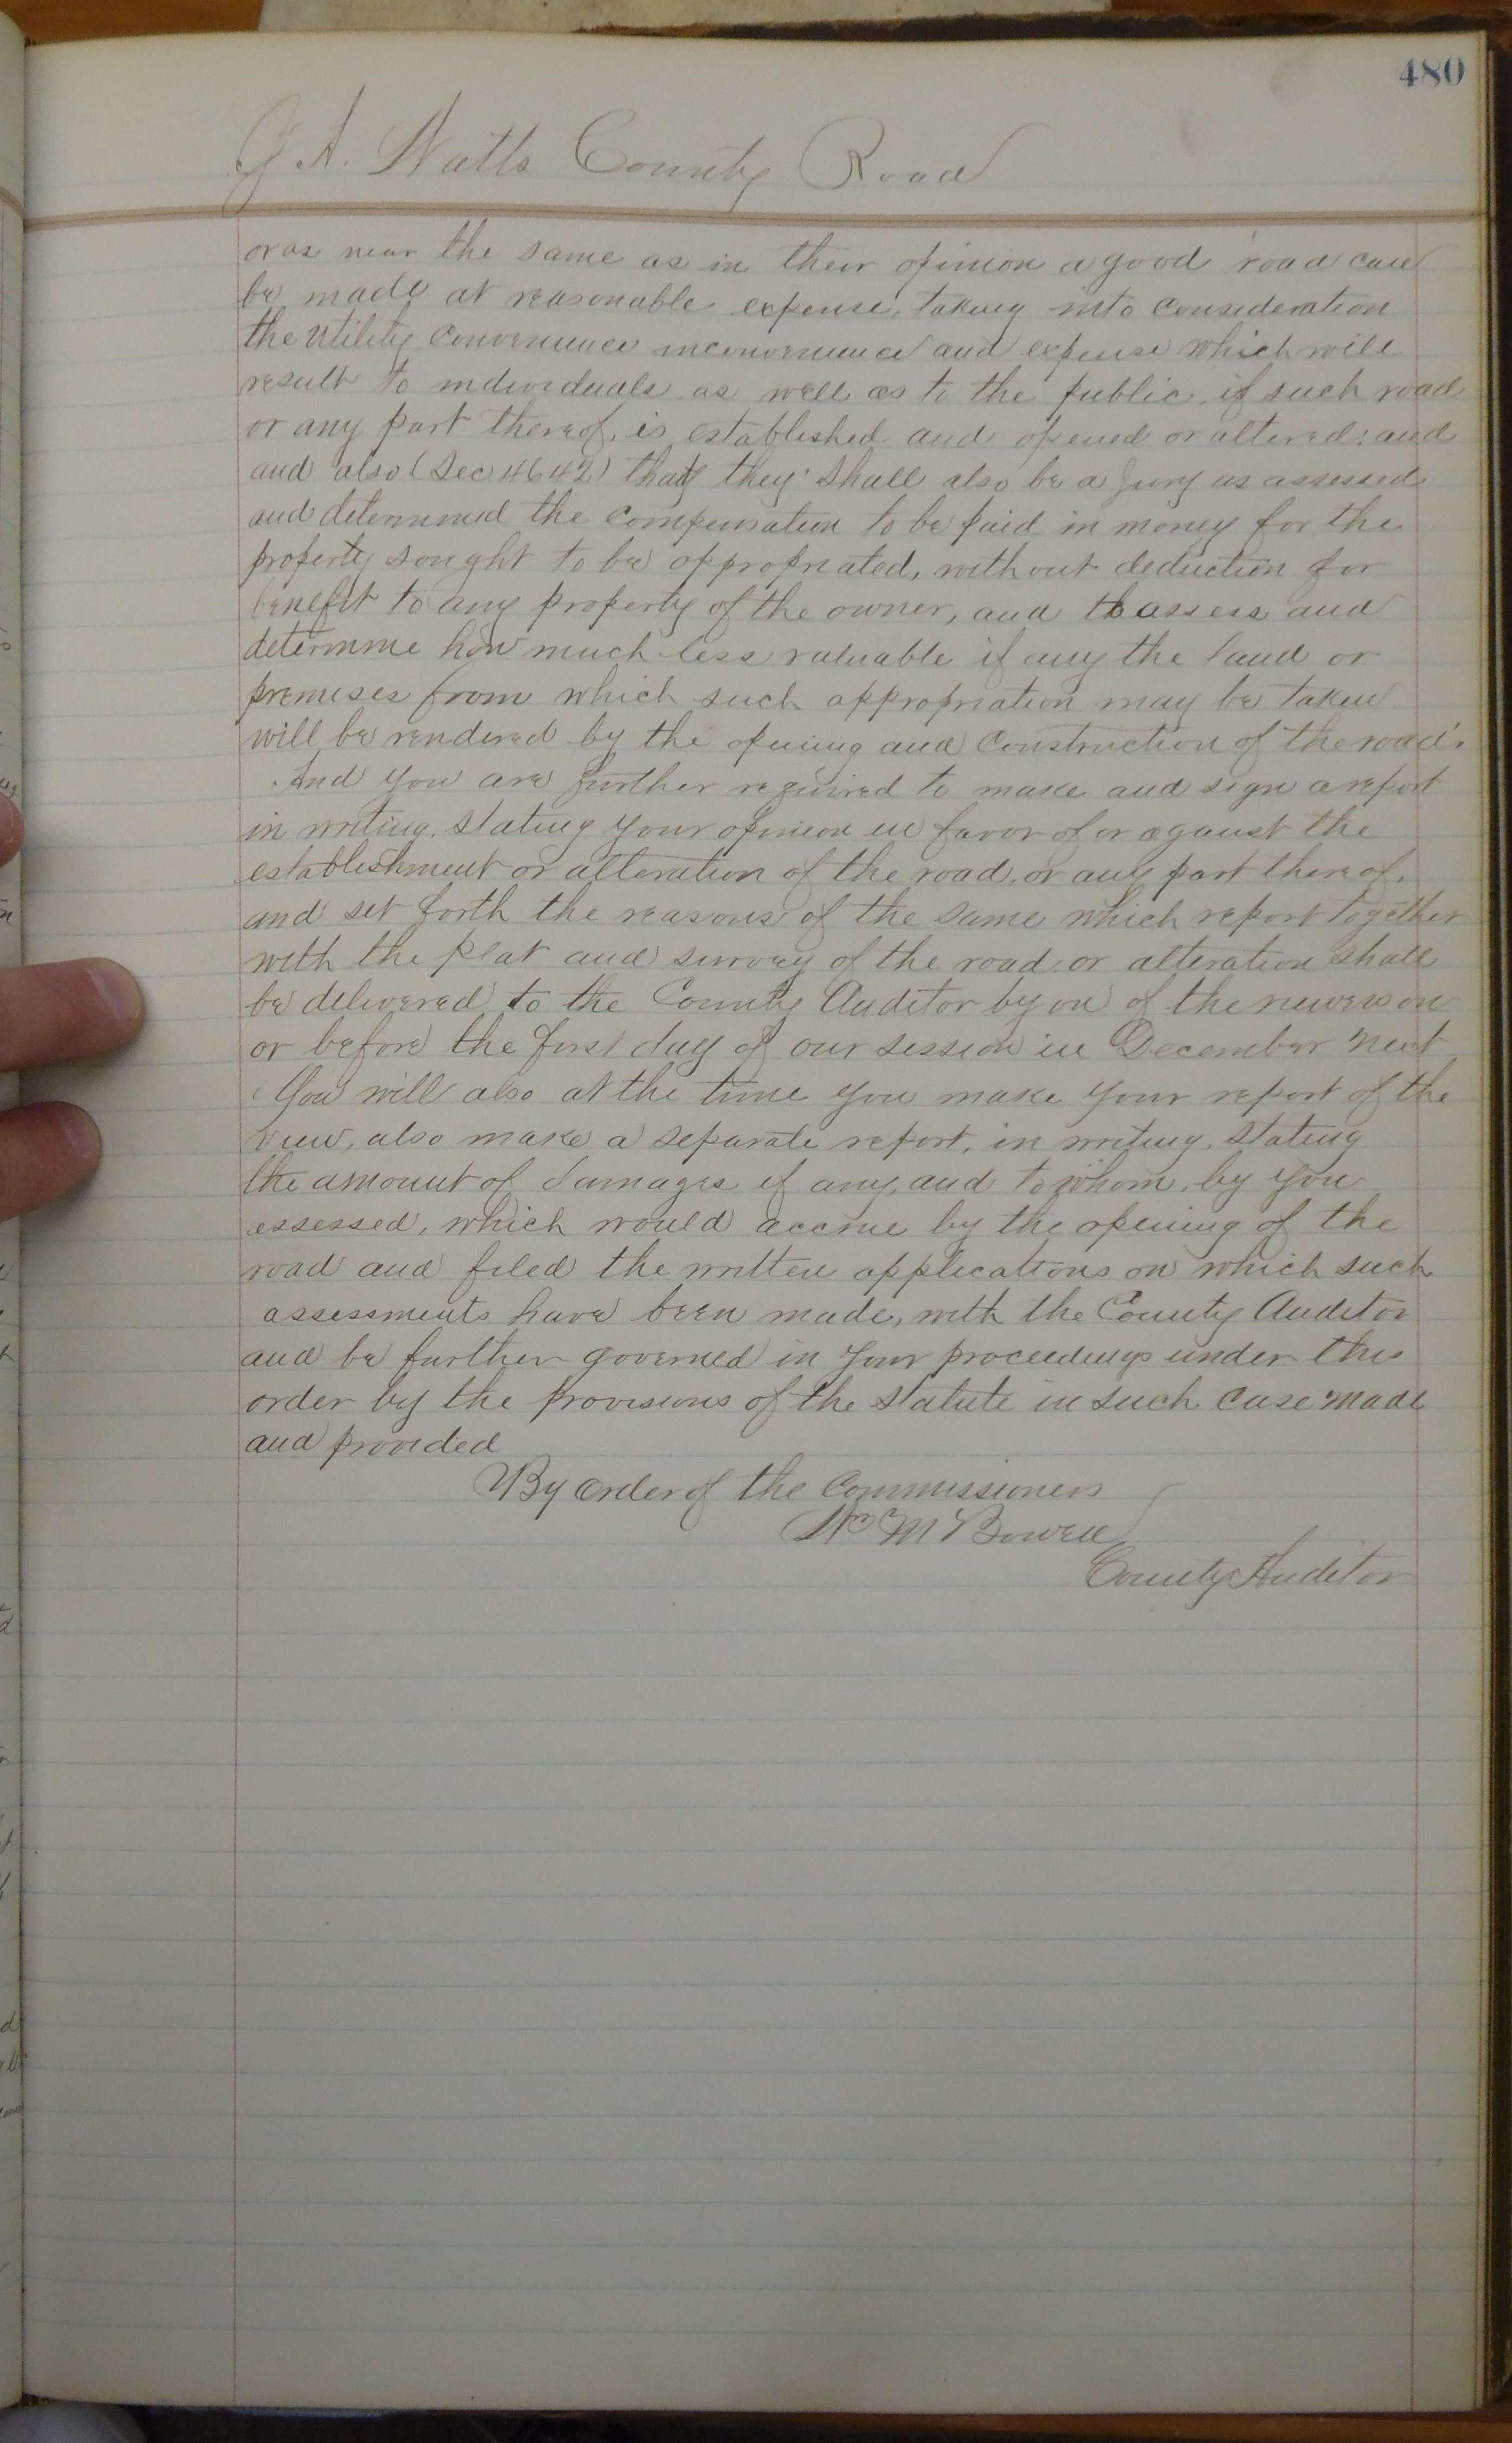 480
J. A. Watts County Road
or as near the same as in their opinion a good road can
be made at reasonable expense, taking into consideration
the utility convenience inconvenience and expense which will
result to individuals as well as to the public, if such road
or any part thereof, is established and opened or altered: and
and also (Sec 4642) that they shall also be a Jury as assessed
and determined the compensation to be paid in money for the
property sought to be appropriated, without deduction for
benefit to any property of the owner, and to assess and
determine how much less valuable if any the land or
premises from which such appropriation may be taken
will be rendered by the opening and construction of the road.
And you are further required to make and sign a report
in writing, stating your opinion in favor of or against the
establishment or alteration of the road, or any part thereof,
and set forth the reasons of the same which report together
with the plat and survey of the road or alteration shall
be delivered to the County Auditor by on of the on
or before the first day of our session in December next
You will also at the time you make your report of the
view, also make a separate report, in writing, stating
the amount of damages if any, and to whom, by you
assessed, which would accrue by the opening of the
road and filed the written applications on which such
assessments have been made, with the County Auditor
and be further governed in your proceedings under this
order by the provisions of the statute in such case made
and provided
By order of the Commissioners
Wm M Bowell
County Auditor